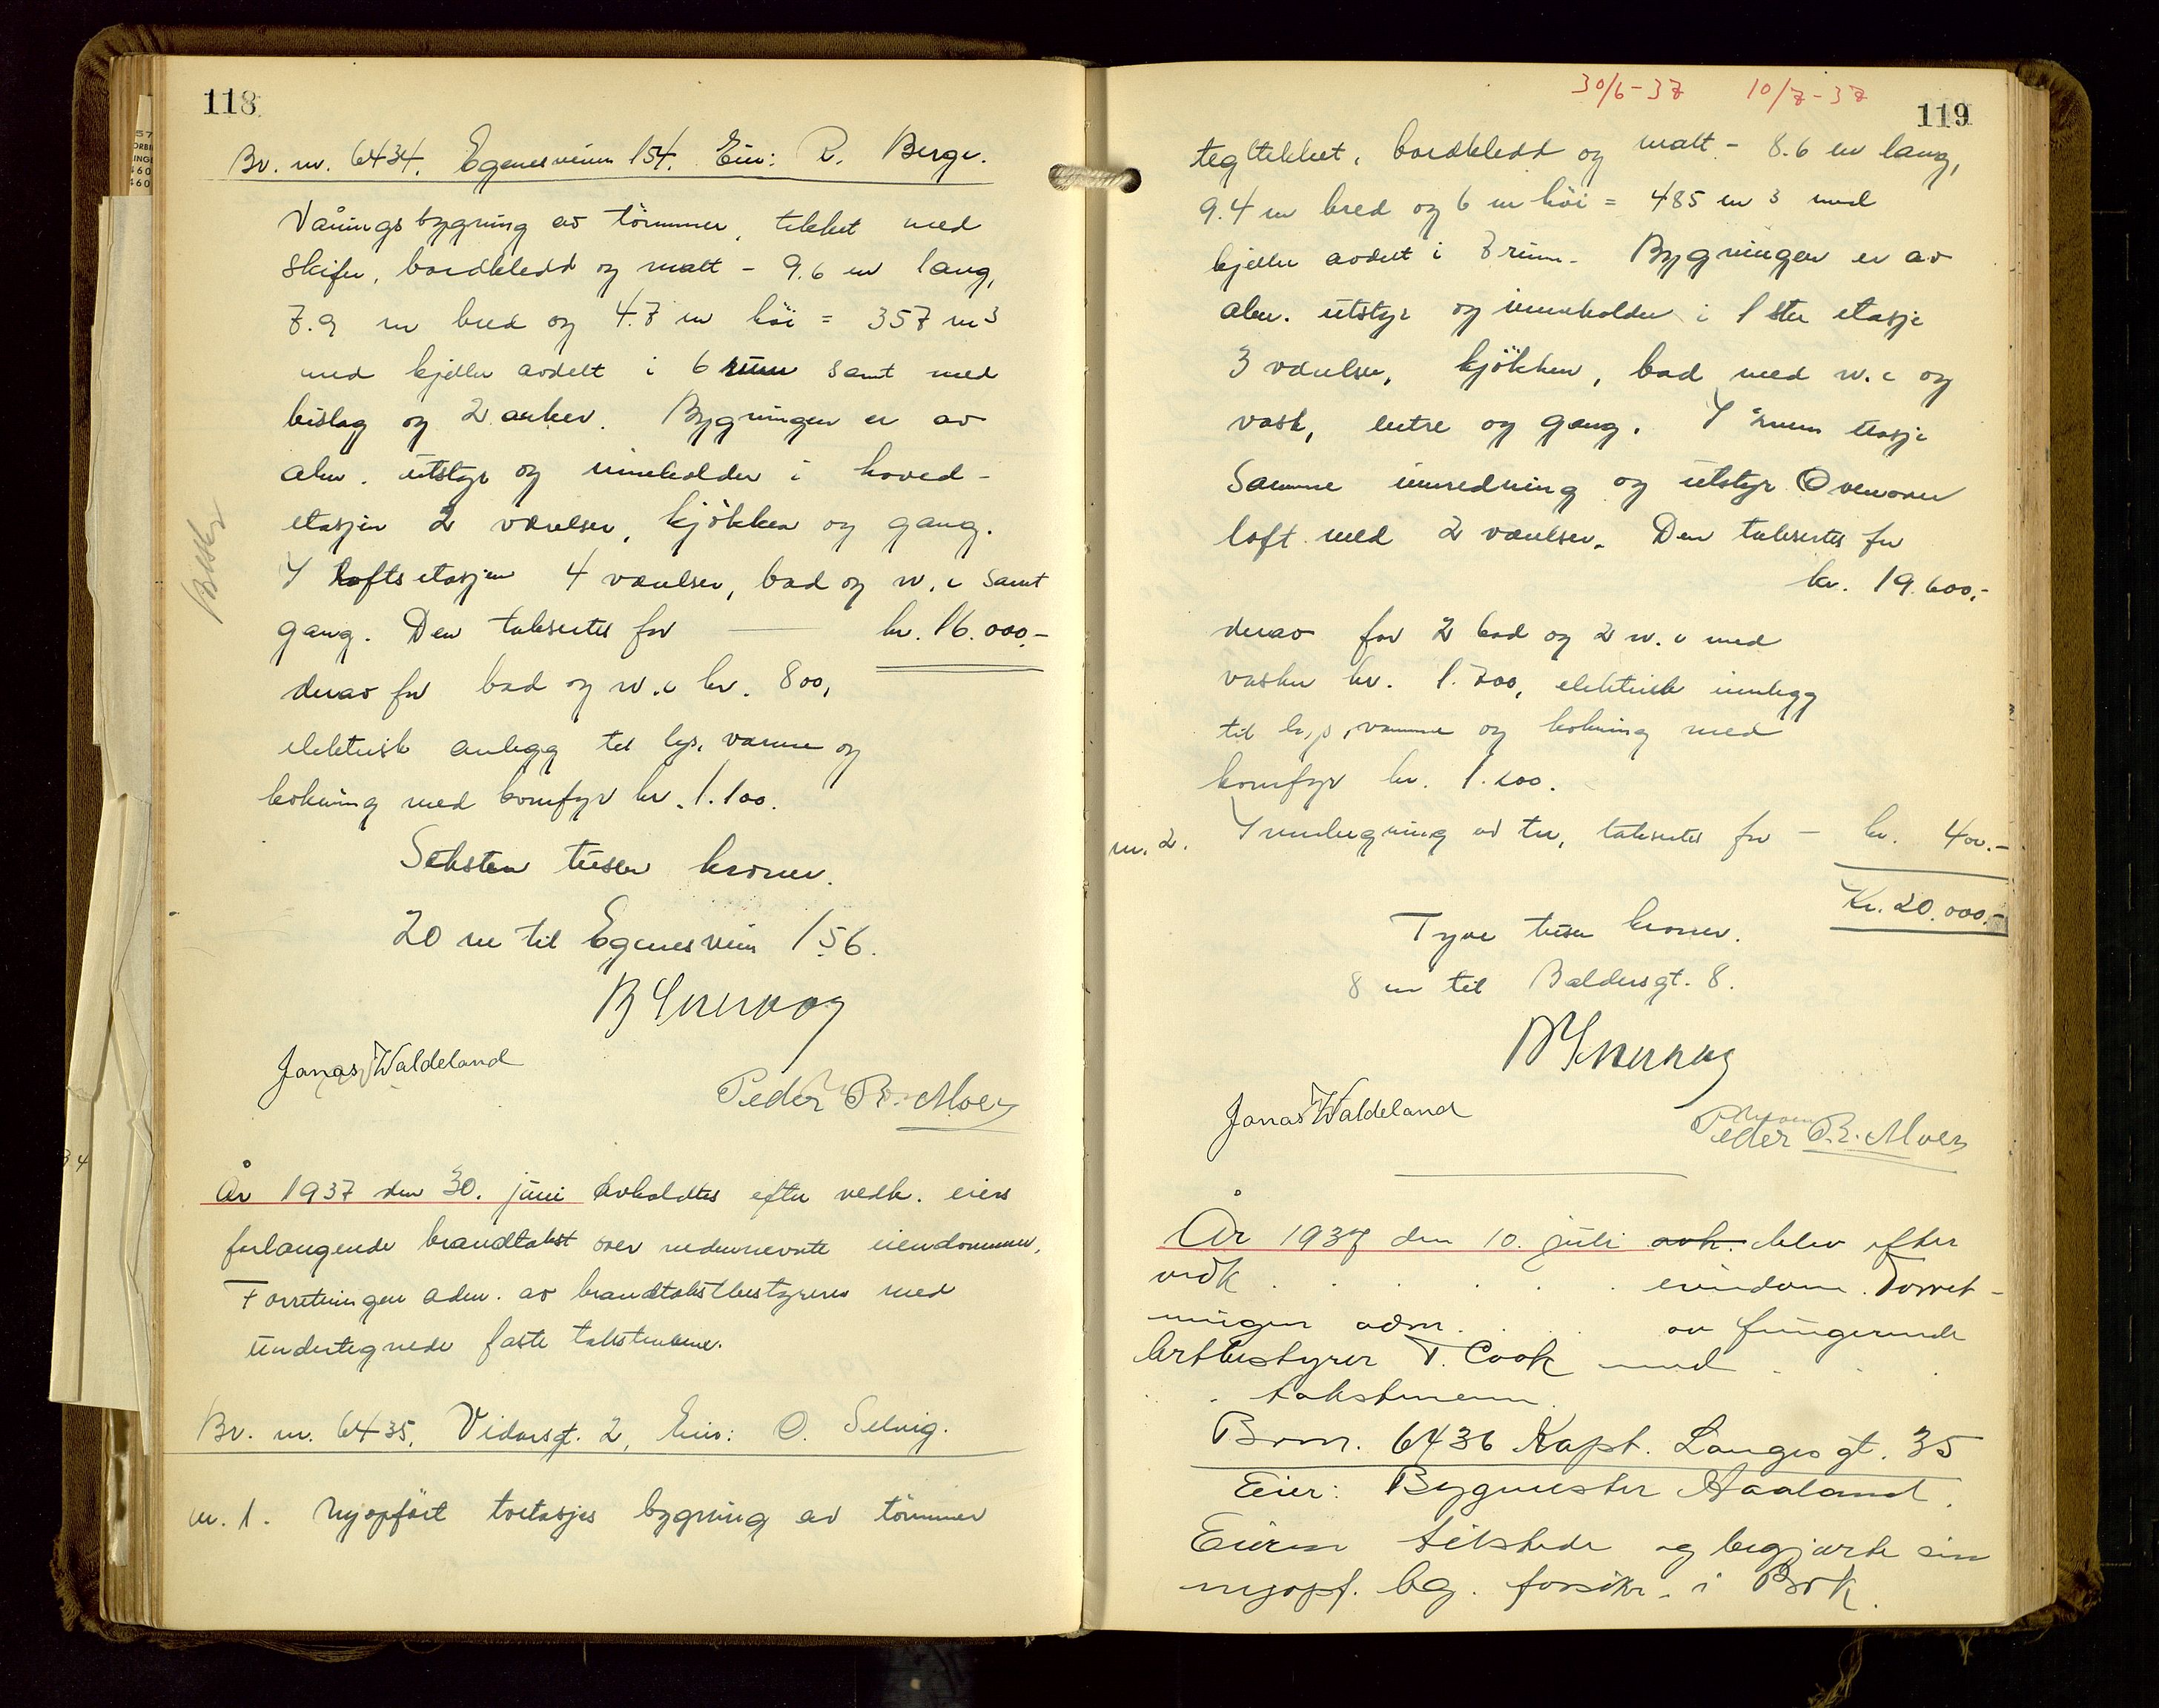 118
Br. nr. 6434. Egenesveien 154. Eier: R. Berge.
Våningsbygning av tömmer, tekket med
skifer, bordkledd og malt - 9.6 m lang,
7.9 m bred og 4.7 m höi = 357 m3
med kjeller avdelt i 6 rum samt med
bislag og 2 arker. Bygningen er av
alm. utstyr og inneholder i hoved-
etasjen 2 værelser, kjökken og gang.
I loftsetasjen 4 værelser, bad og w.c samt
gang. Den takseres for — kr. 16.000.-
derav for bad og w.c kr. 800,
elektrisk anlegg til lys, varme og
kokning med komfyr kr. 1.100.
Seksten tusen kroner.
20 m til Egenesveien 156.
Jonas Waldeland
Peder R. Moen
År 1937 den 30. juni avholdtes efter vedk. eiers
forlangende brandtakst over nedennevnte eiendommer.
Forretningen adm. av brandtakstbestyreren med
undertegnede faste takstmenn.
Br. nr. 6435, Vidarsgt. 2, Eier: O. Selvig.
nr. 1. Nyopfört toetasjes bygning av tömmer
30/6-37 10/7-37
119
tegltekket, bordkledd og malt - 8.6 m lang,
9.4 m bred og 6 m höi = 485 m3 med
kjeller avdelt i 3 rum. Bygningen er av
alm. utstyr og inneholder i 1ste etasje
3 værelser, kjökken, bad med w.c og
vask, entre og gang. I annen etasje
samme innredning og utstyr. Ovenover
loft med 2 værelser. Den takseres for
kr. 19.600.-
derav for 2 bad og 2 w.c med
vasker kr. 1.700, elektrisk innlegg
til lys, varme og kokning med
komfyr kr. 1.200.
nr. 2. Innhegning av tre, takseres for — kr. 400.-
Kr. 20.000.-
Tyve tusen kroner.
8 m til Baldersgt. 8.
Jonas Waldeland
Peder R. Moen
År 1937 den 10. juli avh. blev efter
vedk . . . . . . eiendom. Forret-
ningen adm. . . . av fungerende
brtbestyrer T. Cook med . . .
. . takstmenn.
Brnr. 6436 Kapt. Langes gt. 35
Eier: Bygmester Aaland.
Eieren tilstede og begjærte sin
nyopf. bg. forsikr. i Brk.